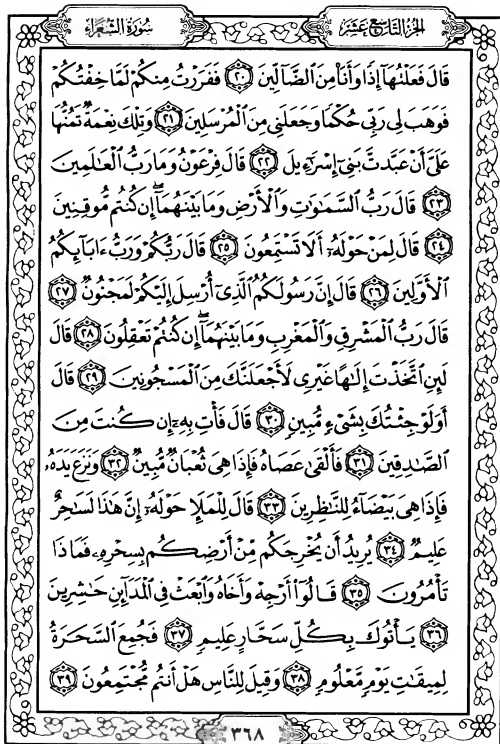 الجزء التاسع عشر
سورة الشعراء
قَالَ فَعَلْتُهَآ إِذًا وَأَنَا۠ مِنَ ٱلضَّآلِّينَ ٢٠ فَفَرَرْتُ مِنكُمْ لَمَّا خِفْتُكُمْ
فَوَهَبَ لِى رَبِّى حُكْمًا وَجَعَلَنِى مِنَ ٱلْمُرْسَلِينَ ٢١ وَتِلْكَ نِعْمَةٌ تَمُنُّهَا
عَلَىَّ أَنْ عَبَّدتَّ بَنِىٓ إِسْرَٰٓءِيلَ ٢٢ قَالَ فِرْعَوْنُ وَمَا رَبُّ ٱلْعَٰلَمِينَ
٢٣ قَالَ رَبُّ ٱلسَّمَٰوَٰتِ وَٱلْأَرْضِ وَمَا بَيْنَهُمَآ إِن كُنتُم مُّوقِنِينَ
٢٤ قَالَ لِمَنْ حَوْلَهُۥٓ أَلَا تَسْتَمِعُونَ ٢٥ قَالَ رَبُّكُمْ وَرَبُّ ءَابَآئِكُمُ
ٱلْأَوَّلِينَ ٢٦ قَالَ إِنَّ رَسُولَكُمُ ٱلَّذِىٓ أُرْسِلَ إِلَيْكُمْ لَمَجْنُونٌ ٢٧
قَالَ رَبُّ ٱلْمَشْرِقِ وَٱلْمَغْرِبِ وَمَا بَيْنَهُمَآ إِن كُنتُمْ تَعْقِلُونَ ٢٨ قَالَ
لَئِنِ ٱتَّخَذْتَ إِلَٰهًا غَيْرِى لَأَجْعَلَنَّكَ مِنَ ٱلْمَسْجُونِينَ ٢٩ قَالَ
أَوَلَوْ جِئْتُكَ بِشَىْءٍ مُّبِينٍ ٣٠ قَالَ فَأْتِ بِهِۦٓ إِن كُنتَ مِنَ
ٱلصَّٰدِقِينَ ٣١ فَأَلْقَىٰ عَصَاهُ فَإِذَا هِىَ ثُعْبَانٌ مُّبِينٌ ٣٢ وَنَزَعَ يَدَهُۥ
فَإِذَا هِىَ بَيْضَآءُ لِلنَّٰظِرِينَ ٣٣ قَالَ لِلْمَلَإِ حَوْلَهُۥٓ إِنَّ هَٰذَا لَسَٰحِرٌ
عَلِيمٌ ٣٤ يُرِيدُ أَن يُخْرِجَكُم مِّنْ أَرْضِكُم بِسِحْرِهِۦ فَمَاذَا
تَأْمُرُونَ ٣٥ قَالُوٓا۟ أَرْجِهْ وَأَخَاهُ وَٱبْعَثْ فِى ٱلْمَدَآئِنِ حَٰشِرِينَ
٣٦ يَأْتُوكَ بِكُلِّ سَحَّارٍ عَلِيمٍ ٣٧ فَجُمِعَ ٱلسَّحَرَةُ
لِمِيقَٰتِ يَوْمٍ مَّعْلُومٍ ٣٨ وَقِيلَ لِلنَّاسِ هَلْ أَنتُم مُّجْتَمِعُونَ ٣٩
٣٦٨